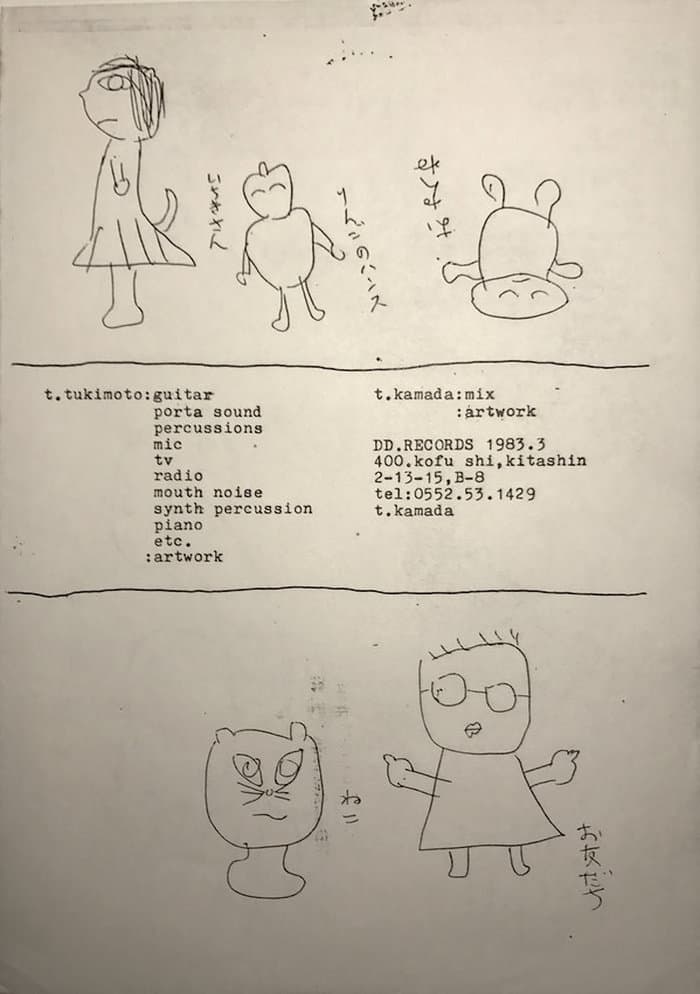 りんごのハンス
t.tukimoto:guitar
porta sound
percussions
mic
tv
radio
mouth noise
synth percussion
piano
etc.
:artwork
t.kamada:mix
:artwork
DD.RECORDS 1983.3
400.kofu shi,kitashin
2-13-15,B-8
tel:0552.53.1429
t.kamada
ねこ
お友だち